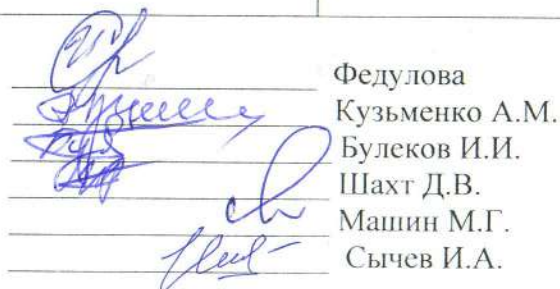 Федулова
Кузьменко А.М.
Булеков И.И.
Шахт Д.В.
Машин М.Г.
Сычев И.А.